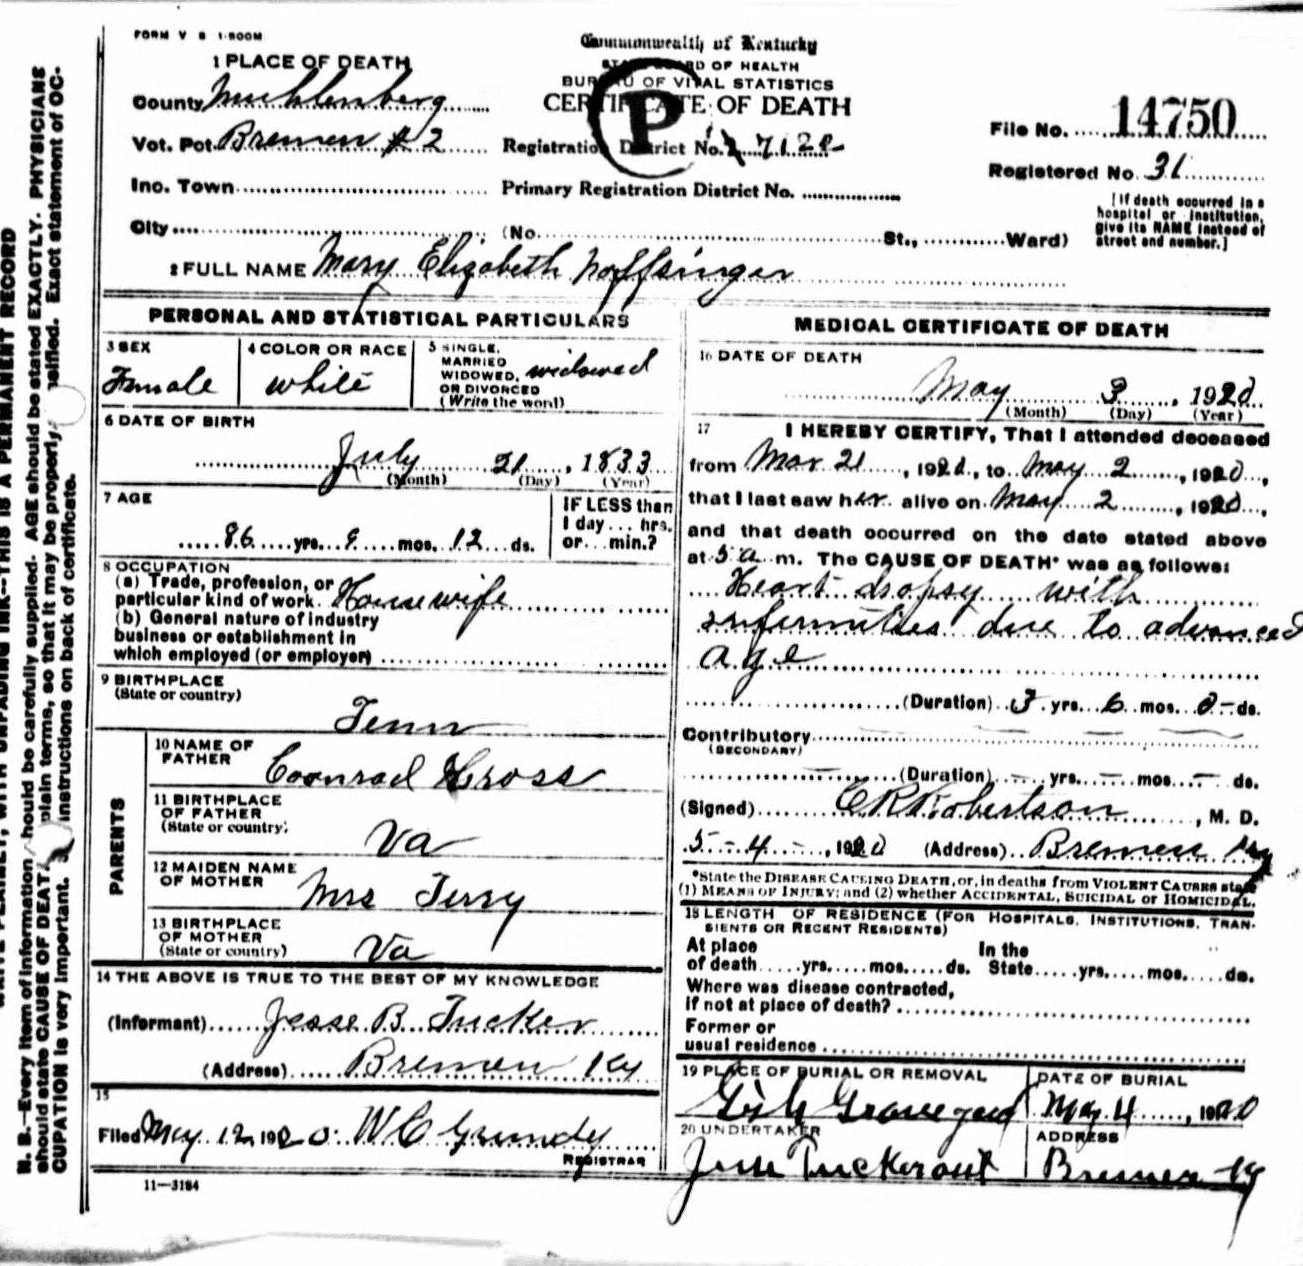 FORM V S 1-500M
Commonwealth of Kentucky
STATE BOARD OF HEALTH
BUREAU OF VITAL STATISTICS
CERTIFICATE OF DEATH
P
1 PLACE OF DEATH
County Muhlenberg
Vot. Pct. Bremen # 2
Registration District No. 7122
File No. 14750
Registered No. 31
Inc. Town
Primary Registration District No.
[If death occurred in a hospital or institution, give its NAME instead of street and number.]
City (No. St., Ward)
2 FULL NAME Mary Elizabeth Noffsinger
PERSONAL AND STATISTICAL PARTICULARS
3 SEX
Female
4 COLOR OR RACE
white
5 SINGLE, MARRIED WIDOWED, OR DIVORCED (Write the word)
widowed
6 DATE OF BIRTH
July 21, 1833
(Month) (Day) (Year)
7 AGE
86 yrs. 9 mos. 12 ds.
IF LESS than 1 day ... hrs. or ... min.?
8 OCCUPATION
(a) Trade, profession, or
particular kind of work. Housewife
(b) General nature of industry
business or establishment in
which employed (or employer)
9 BIRTHPLACE
(State or country)
Tenn
PARENTS
10 NAME OF FATHER
Conrad Gross
11 BIRTHPLACE OF FATHER
(State or country)
Va
12 MAIDEN NAME OF MOTHER
Mrs Terry
13 BIRTHPLACE OF MOTHER
(State or country)
Va
14 THE ABOVE IS TRUE TO THE BEST OF MY KNOWLEDGE
(Informant) Jesse B. Tucker
(Address) Bremen Ky
15
Filed May 12 1920 W C Grundy
REGISTRAR
11—3184
MEDICAL CERTIFICATE OF DEATH
16 DATE OF DEATH
May 3, 1920
(Month) (Day) (Year)
17 I HEREBY CERTIFY, That I attended deceased
from Mar 21, 1920, to May 2, 1920,
that I last saw her alive on May 2, 1920,
and that death occurred on the date stated above
at 5 a m. The CAUSE OF DEATH* was as follows:
Heart dropsy with
infirmities due to advanced
age
(Duration) 3 yrs. 6 mos. 0 ds.
Contributory
(SECONDARY)
(Duration) — yrs. — mos. — ds.
(Signed) C R Robertson, M. D.
5-4-, 1920 (Address) Bremen Ky
*State the DISEASE CAUSING DEATH, or, in deaths from VIOLENT CAUSES state
(1) MEANS OF INJURY; and (2) whether ACCIDENTAL, SUICIDAL or HOMICIDAL.
18 LENGTH OF RESIDENCE (FOR HOSPITALS, INSTITUTIONS, TRAN-
SIENTS OR RECENT RESIDENTS)
At place In the
of death yrs. mos. ds. State yrs. mos. ds.
Where was disease contracted,
if not at place of death?
Former or
usual residence
19 PLACE OF BURIAL OR REMOVAL
Gish Graveyard
DATE OF BURIAL
May 4, 1920
20 UNDERTAKER
Jesse Tucker
ADDRESS
Bremen Ky
N. B.—Every item of information should be carefully supplied. AGE should be stated EXACTLY. PHYSICIANS
should state CAUSE OF DEATH in plain terms, so that it may be properly classified. Exact statement of OC-
CUPATION is very important. instructions on back of certificate.
WRITE PLAINLY, WITH UNFADING INK--THIS IS A PERMANENT RECORD